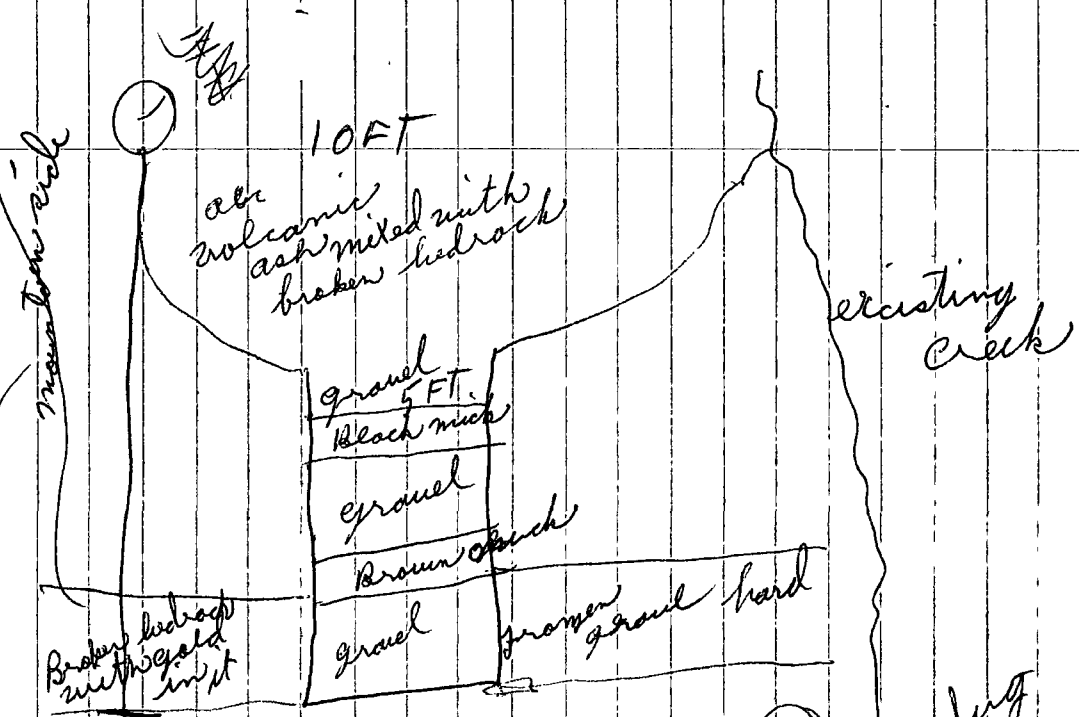 10FT
volcanic
ash mixed with
broken bedrock
mountain side
existing
creek
gravel
5 FT.
Black muck
gravel
Brown muck
gravel
frozen
gravel hard
Broken bedrock
with gold
in it